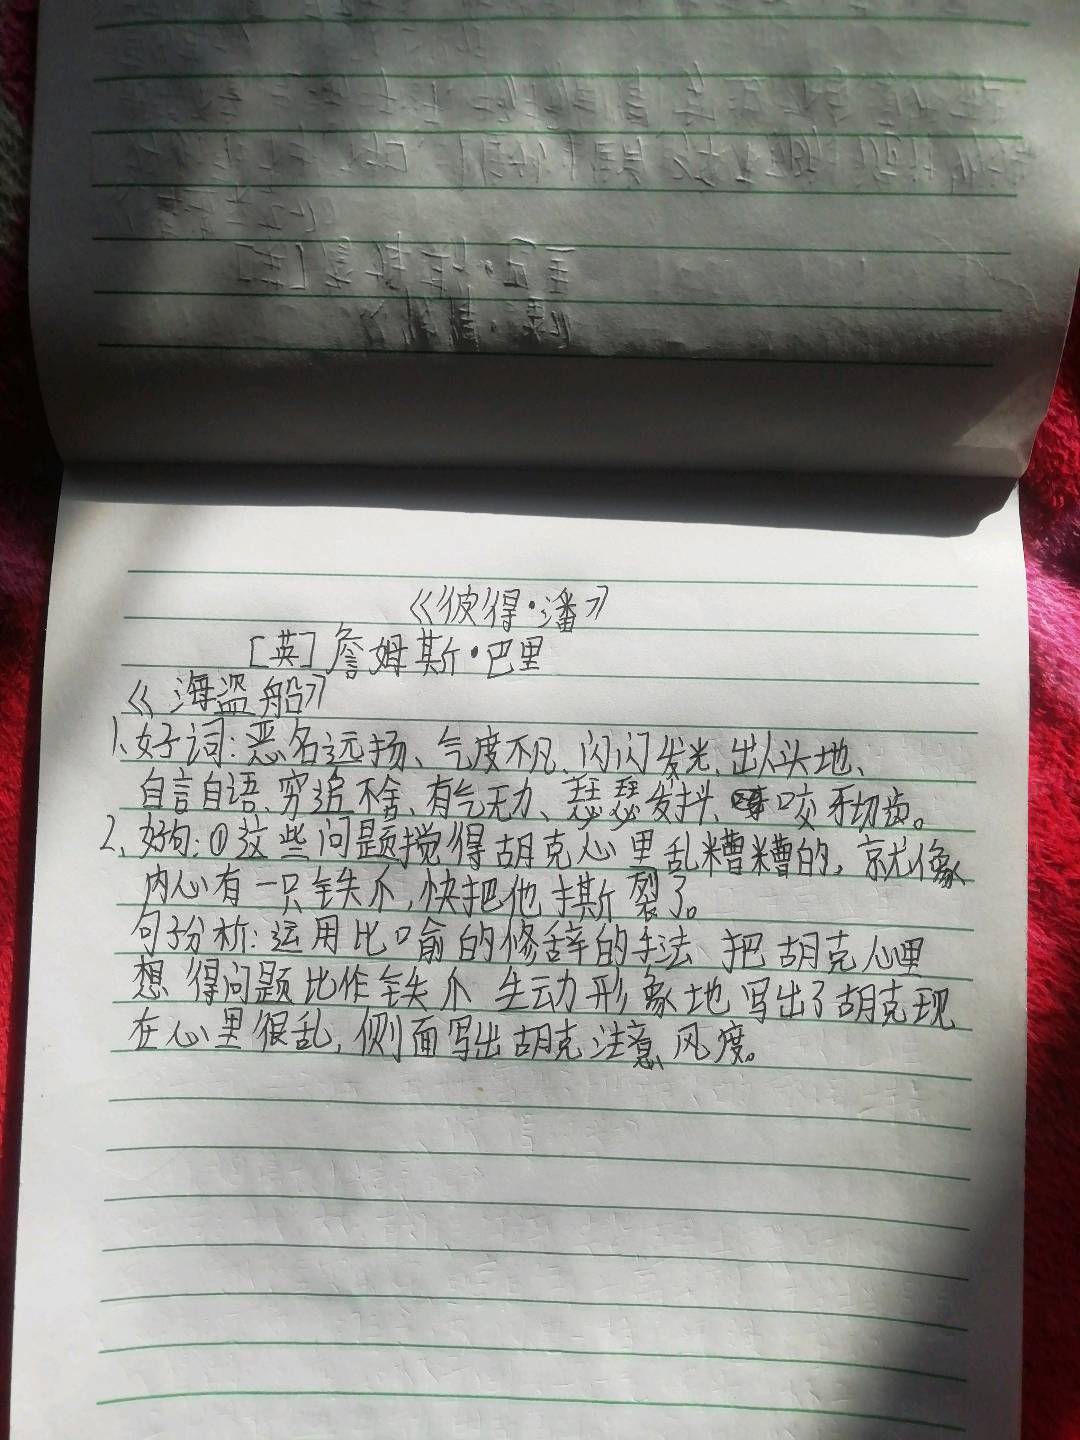 《彼得·潘》
[英]詹姆斯·巴里
《海盗船》
1、好词:恶名远扬、气度不凡、闪闪发光、出人头地、
自言自语、穷追不舍、有气无力、瑟瑟发抖、咬牙切齿。
2、好句:①这些问题搅得胡克心里乱糟糟的,就像
内心有一只铁爪,快把他撕裂了。
句子分析:运用比喻的修辞的手法、把胡克心里
想得问题比作铁爪 生动形象地写出了胡克现
在心里很乱,侧面写出胡克注意风度。